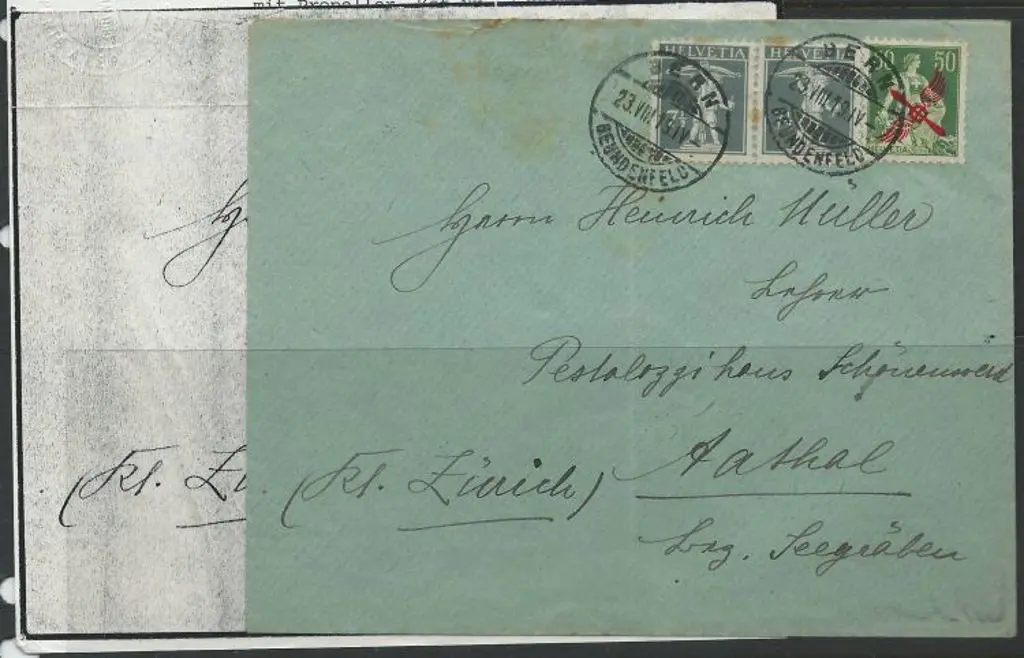 mit Propeller
HELVETIA HELVETIA 50 50
BERN BERN
23.VIII.13.IV 23.VIII.13.IV
BEUNDENFELD BEUNDENFELD
HELVETIA
Herrn Heinrich Müller
Lehrer
Pestalozzihaus Schönenwerd
Aathal
(Kt. Zürich)
Bzg. Seegräben
(Kt. Zü